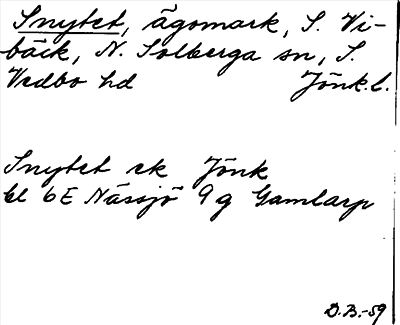 Snytet, ägomark, S. Vi-
bäck, N. Solberga sn, S.
Vedbo hd Jönk.l.
Snytet ek Jönk
bl 6E Nässjö 9 g Gamlarp
D.B.-59